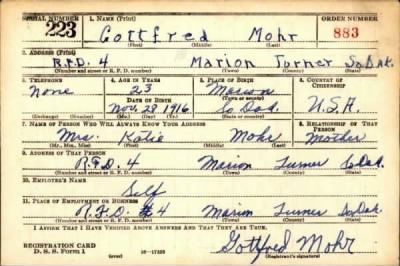 SERIAL NUMBER 1. NAME (Print) ORDER NUMBER
223 Gottfred Mohr 883
(First) (Middle) (Last)
2. ADDRESS (Print)
R.F.D. 4 Marion Turner So.Dak.
(Number and street or R. F. D. number) (Town) (County) (State)
3. TELEPHONE 4. AGE IN YEARS 5. PLACE OF BIRTH 6. COUNTRY OF CITIZENSHIP
None 23 Marion
DATE OF BIRTH (Town or county)
Nov. 28 1916 So Dak. U.S.A.
(Exchange) (Number) (Mo.) (Day) (Yr.) (State or country)
7. NAME OF PERSON WHO WILL ALWAYS KNOW YOUR ADDRESS 8. RELATIONSHIP OF THAT PERSON
Mrs. Katie Mohr Mother
(Mr., Mrs., Miss) (First) (Middle) (Last)
9. ADDRESS OF THAT PERSON
R.F.D. 4 Marion Turner So Dak.
(Number and street or R. F. D. number) (Town) (County) (State)
10. EMPLOYER'S NAME
Self
11. PLACE OF EMPLOYMENT OR BUSINESS
R.F.D. #4 Marion Turner So Dak.
(Number and street or R. F. D. number) (Town) (County) (State)
I AFFIRM THAT I HAVE VERIFIED ABOVE ANSWERS AND THAT THEY ARE TRUE.
REGISTRATION CARD
D. S. S. Form 1 (over) Gottfred Mohr
(Registrant's signature)